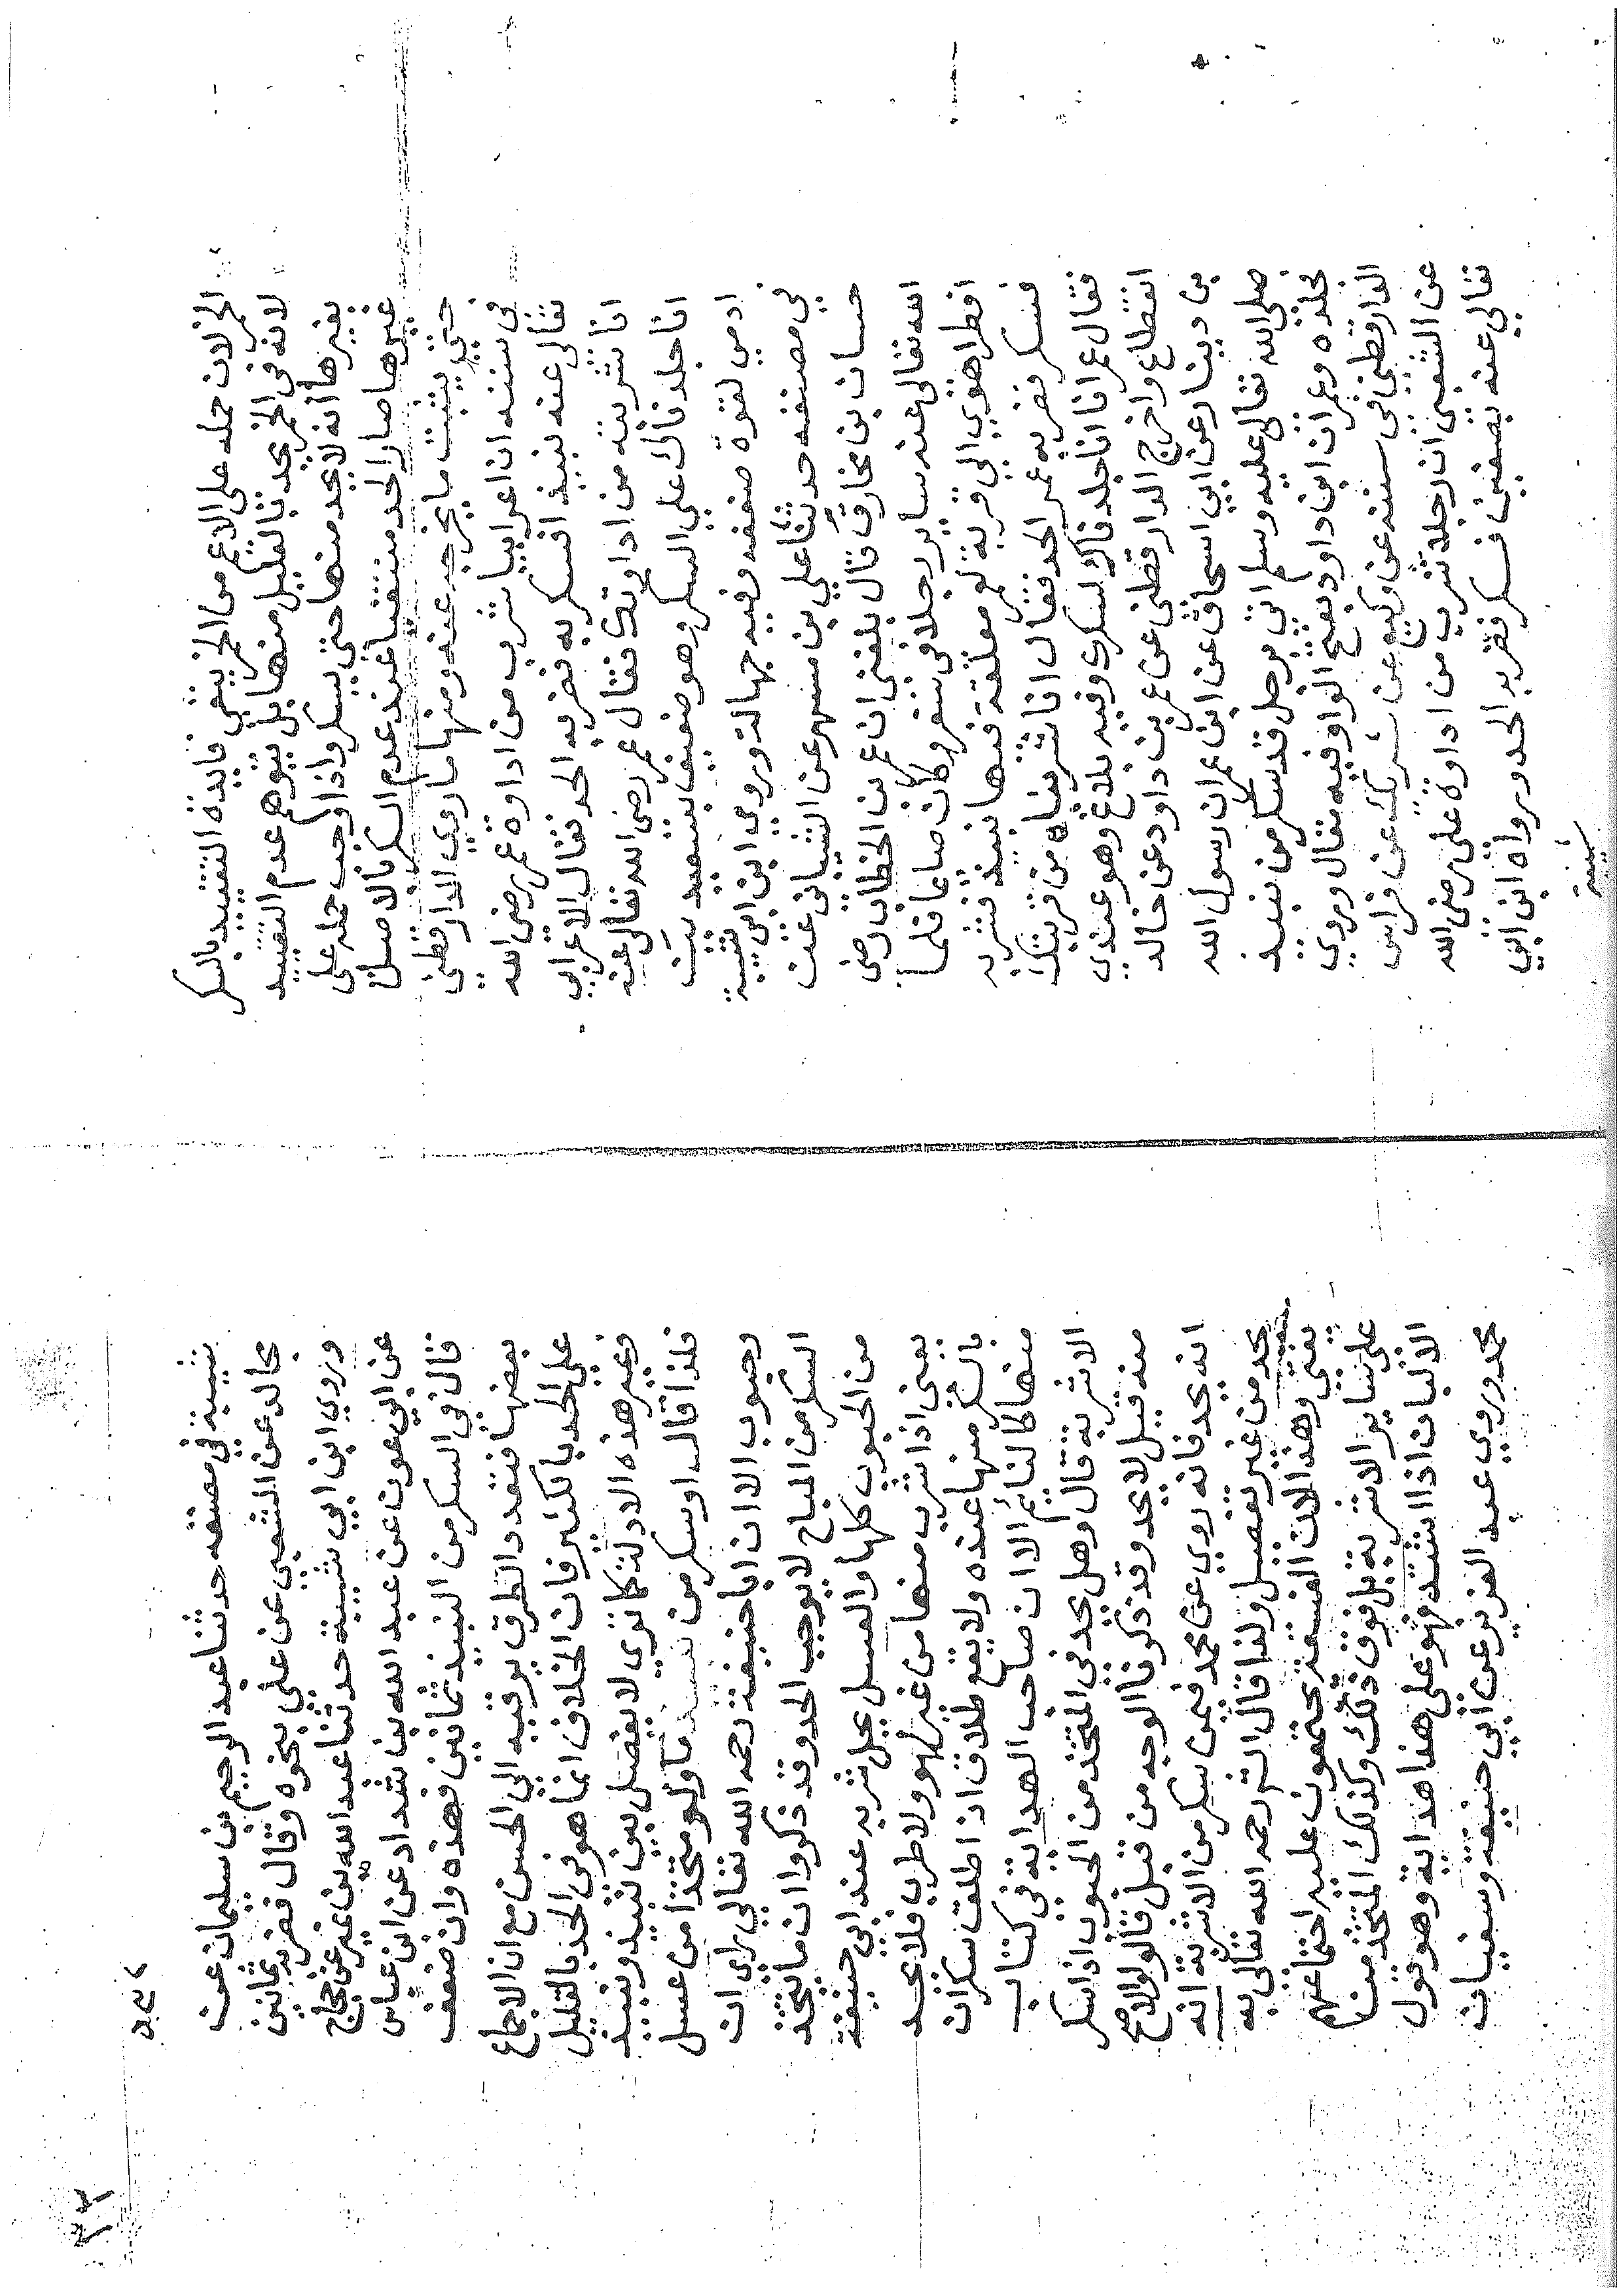 الخمر لان حمله على الاعم من الخمر ينفي فايدة التقييد بالسكر
لانه في الخمر يحد بالقليل منها بل يتوهم عدم التقييد
بغيرها أنه لا يحد منها حتى يسكر واذا وجب حمله على
غيرها صار الحد منتفيا عند عدم السكر بالاصل
حتى يثبت ما يخرجه عنه ومنها ما روي الدارقطني
في سننه ان اعرابيا شرب من اداوة عمر رضي الله
تعالى عنه نبيذا فسكر به فضربه الحد فقال الاعرابي
انا شربته من اداوتك فقال عمر رضي الله تعالى عنه
انا جلدناك على السكر وهو ضعيف بسعيد بن
ادمي لقوة ضعفه وفيه جهالة وروي ابن ابي شيبة
في مصنفه حدثنا علي بن مسهر عن الشيباني عن
حسان بن مخارق قال بلغني ان عمر بن الخطاب رضي
الله تعالى عنه ساير رجلا في سفر وكان صائما فلما
افطر اهوى الى قربة لعمر معلقة فيها نبيذ فشربه
فسكر فضربه عمر الحد فقال انا شربناه من قربتك
فقال عمر انا انا جلدناك لسكرك وفيه بلاغ وهو عندي
انقطاع واخرج الدارقطني عن عمر بن داود عن خالد
بن دينار عن ابي اسحاق عن ابن عمر ان رسول الله
صلى الله تعالى عليه وسلم اتي برجل قد سكر من نبيذ
فجلده وعمران ابن داود بفتح الواو فيه مقال وروي
الدارقطني في سننه عن وكيع عن شريك عن فراس
عن الشعبي ان رجلا شرب من اداوة علي رضي الله
تعالى عنه بصفين فسكر فضربه الحد ورواه ابن ابي
شيبة
شيبة في مصنفه حدثنا عبد الرحيم بن سليمان عن
مجالد عن الشعبي عن علي بنحوه وقال فضربه ثمانين
وروي ابن ابي شيبة حدثنا عبد الله بن نمير عن حجاج
عن ابي عون عن عبد الله بن شداد عن ابن عباس
قال في السكر من النبيذ ثمانين فهذه وان ضعف
بعضها فتعدد الطرق يرقيه الى الحسن مع ان الاجماع
على الحد بالكثير فان الخلاف انما هو في الحد بالقليل
وغير هذه الادلة كما تري لا يفصل بين نبيذ ونبيذ
فلذا قال او سكر من نبيذ ما ولو متخذا من عسل
وحبوب الا ان ابا حنيفة رحمه الله تعالى يرى ان
السكر من المباح لا يوجب الحد وقد ذكروا ان ما يتخذ
من الحبوب كلها والعسل يحل شربه عند ابي حنيفة
يعني اذا شرب منها من غير لهو ولا طرب فلا يحد
بالسكر منها عنده ولا يقع طلاق اذا طلق سكران
منها كالنائم الا ان صاحب الهداية في كتاب
الاشربة قال وهل يحد في المتخذ من الحبوب اذا سكر
منه قيل لا يحد وقد ذكرنا الوجه من قبل قالوا والاصح
انه يحد فانه روي عن محمد فيمن سكر من الاشربة انه
يحد من غير تفصيل ولذا قال الشر رحمه الله تعالى به
يفتى وهذا لان الفسقة يجتمعون عليه اجتماعهم
على ساير الاشربة بل فوق ذلك وكذلك المتخذ من
الالبان اذا اشتد فهو على هذا هداية وهو قول
محمد وروي عبد العزيز عن ابي حنيفة وسفيان